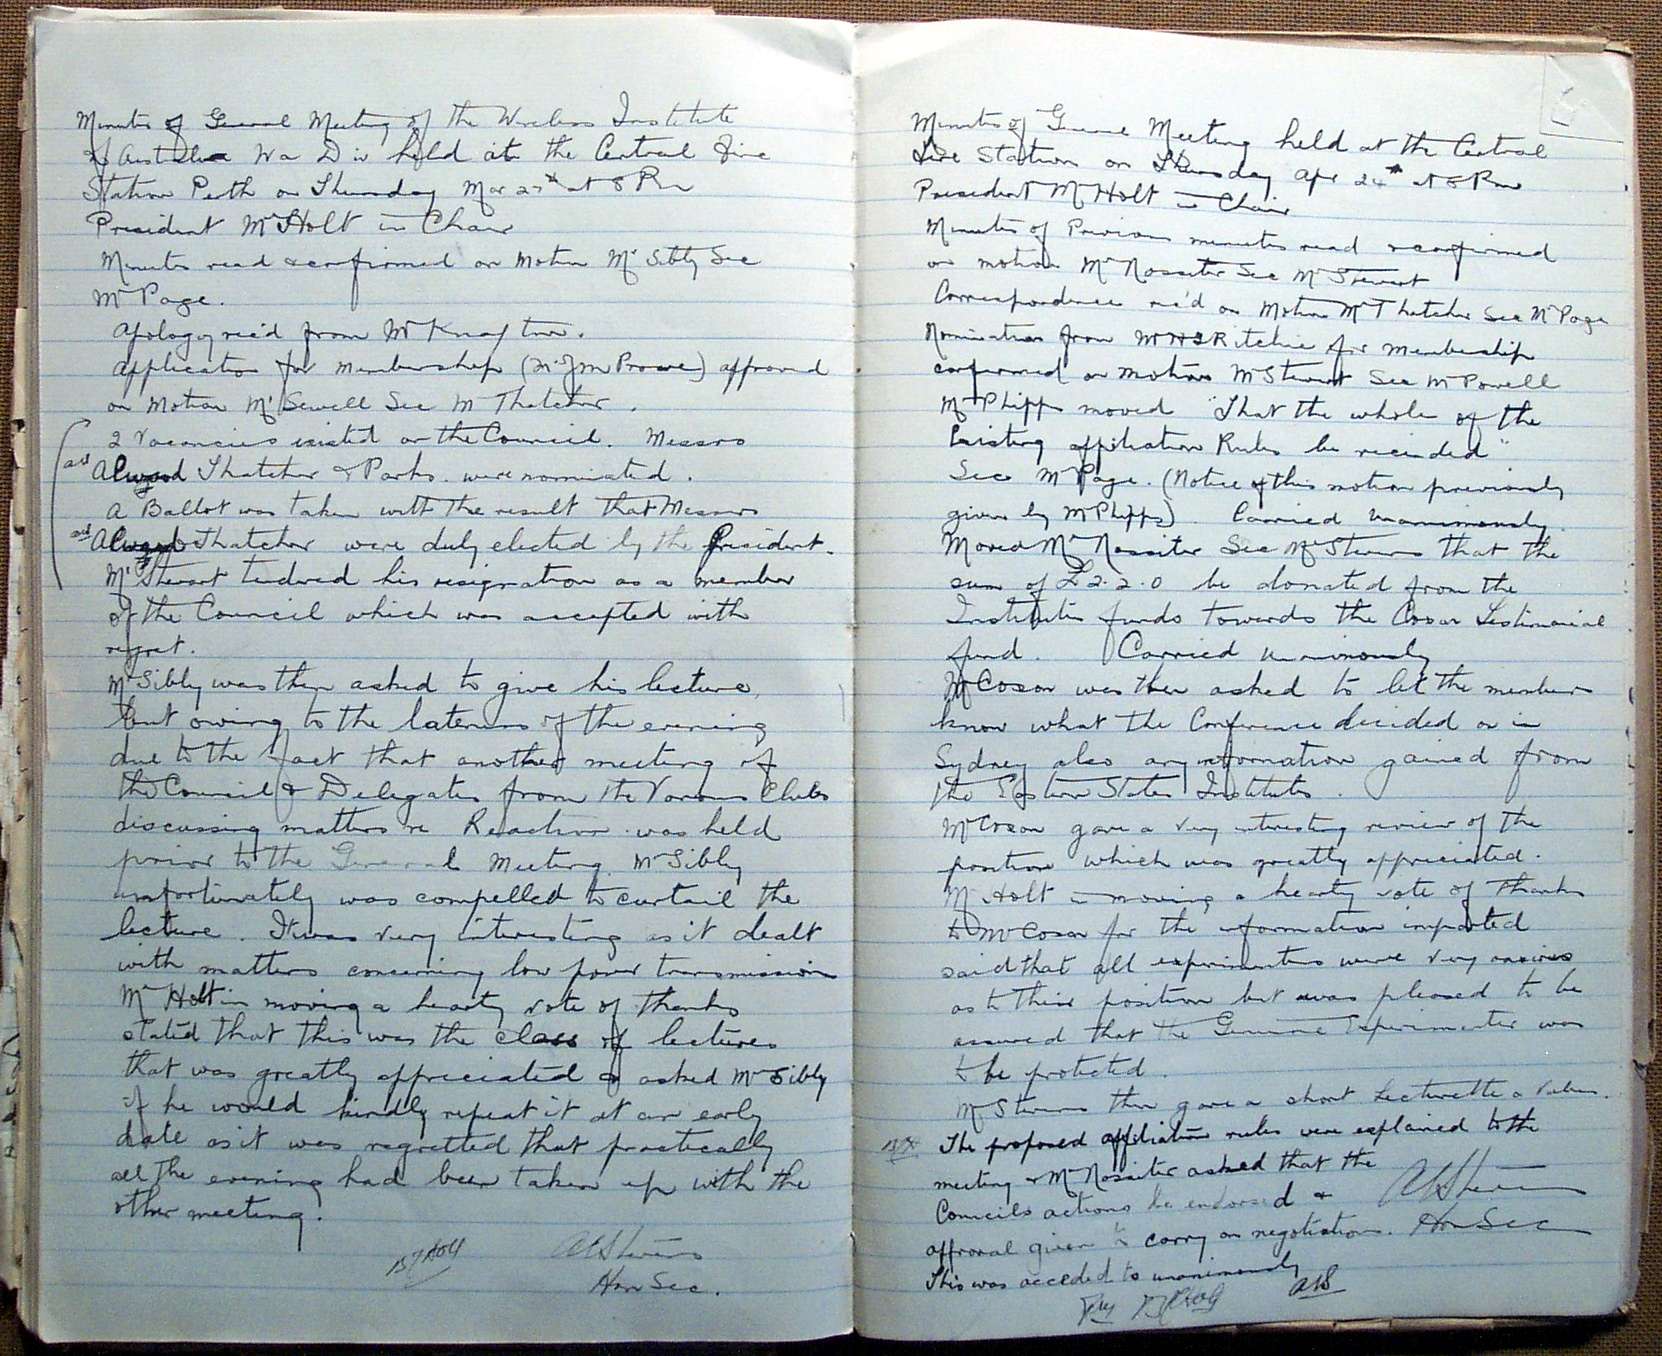 Minutes of General Meeting of the Wireless Institute
of Australia Wa Div held at the Central Fire
Station Perth on Thursday Mar 27th at 8 Pm
President Mr Holt in Chair
Minutes read & confirmed on motion Mr Sibly Sec
Mr Page.
Apology rec'd from Mr
Application for membership (Mr J M Prowse) approved
on Motion Mr Sewell Sec Mr Thatcher.
2 Vacancies existed on the Council. Messrs
Thatcher & Parks were nominated.
A Ballot was taken with the result that Messrs
Thatcher were duly elected by the President.
Mr Stewart tendered his resignation as a member
of the Council which was accepted with
regret.
Mr Sibly was then asked to give his lecture,
but owing to the lateness of the evening
due to the fact that another meeting of
the Council & Delegates from the Various Clubs
discussing matters re Reaction was held
prior to the General Meeting. Mr Sibly
unfortunately was compelled to curtail the
lecture. It was very interesting as it dealt
with matters concerning low power transmission
Mr Holt in moving a hearty vote of thanks
stated that this was the class of lectures
that was greatly appreciated & asked Mr Sibly
if he would kindly repeat it at an early
date as it was regretted that practically
all the evening had been taken up with the
other meeting.
Hon Sec.
Minutes of General Meeting held at the Central
Fire Station on Thursday Apr 24th at 8 Pm
President Mr Holt in Chair
Minutes of Previous minutes read & confirmed
on motion Mr Rossiter Sec Mr Stewart
Correspondence rec'd on Motion Mr Thatcher Sec Mr Page
Nomination from Ritchie for membership
confirmed on motion Mr Stewart Sec Mr Powell
Mr Phipps moved "That the whole of the
Existing affiliation Rules be recinded"
Sec Mr Page. (Notice of this motion previously
given by Mr Phipps). Carried unanimously.
Moved Mr Rossiter Sec Mr Stevens that the
sum of £2.2.0 be donated from the
Institutes funds towards the Coxon Testimonial
fund. Carried unanimously
Mr Coxon was then asked to let the members
know what the Conference decided on in
Sydney also any information gained from
the Eastern States Institutes.
Mr Coxon gave a very interesting review of the
position which was greatly appreciated.
Mr Holt in moving a hearty vote of thanks
to Mr Coxon for the information imparted
said that all experimenters were very anxious
as to their position but was pleased to be
assured that the Genuine Experimenter was
to be protected.
Mr Stevens then gave a short Lecturette on Valves.
The proposed affiliation rules were explained to the
meeting & Mr Rossiter asked that the
Councils actions be endorsed &
approval given to carry on negotiations.
This was acceded to unanimously
Hon Sec